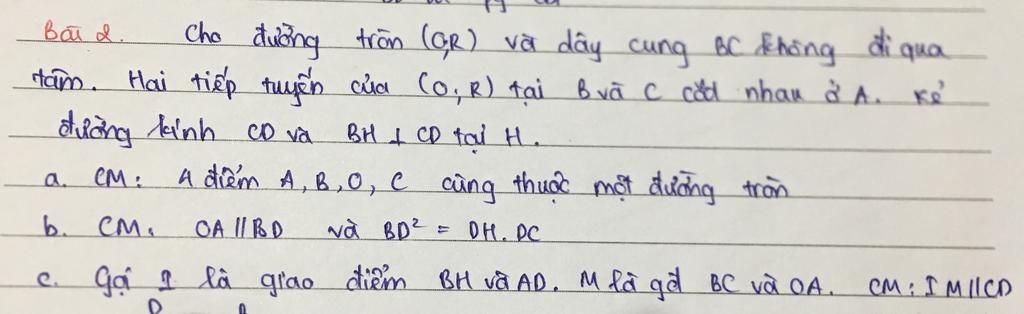 Bài 2. Cho đường tròn (O,R) và dây cung BC không đi qua
tâm. Hai tiếp tuyến của (O,R) tại B và C cắt nhau ở A. Kẻ
đường kính CD và BH ⊥ CD tại H.
a. CM: 4 điểm A, B, O, C cùng thuộc một đường tròn
b. CM: OA // BD và BD² = DH.DC
c. Gọi I là giao điểm BH và AD. M là gđ BC và OA. CM: IM//CD